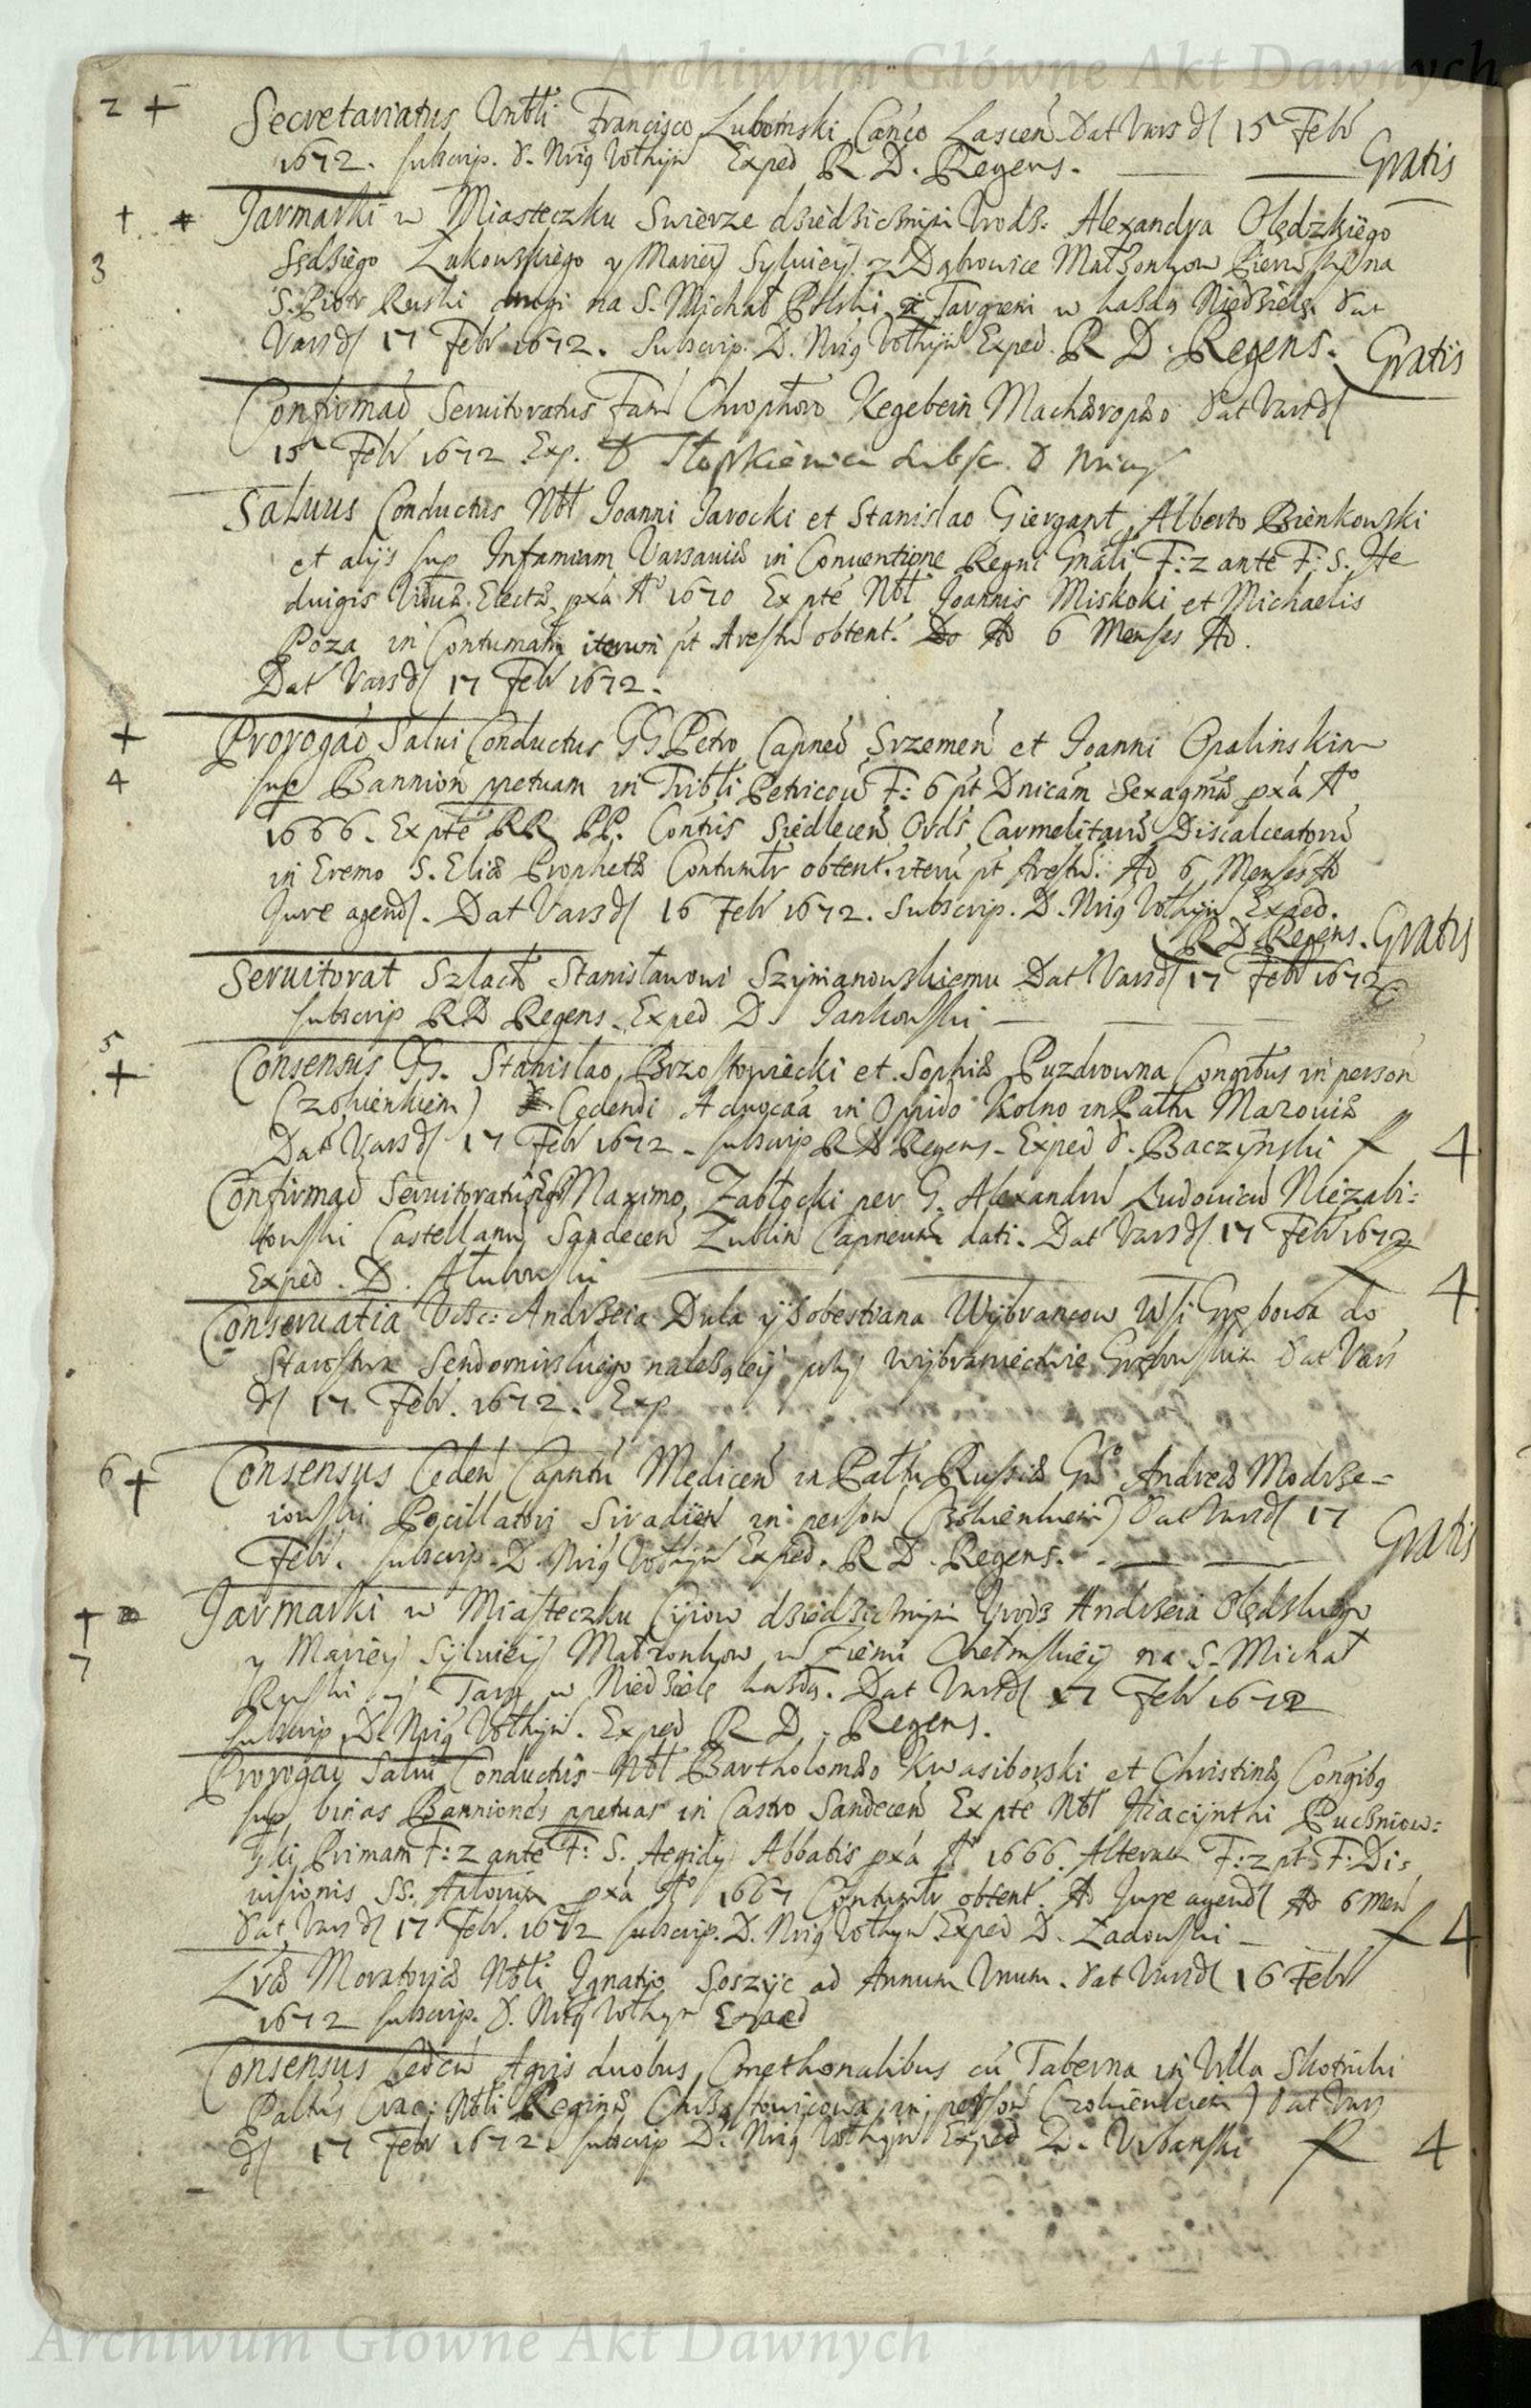 Archiwum Główne Akt Dawnych
2 + Secretariatus Vnbli Francisco Lubomski Canco Lascen Dat Vars d 15 Febr
1672. subscrip. D. Nrig Vothyn Exped R D. Regens. Gratis
+ Jarmarki w Miasteczku Swierze dziedzicznym Vrodz: Alexandra Olędzkiego
3 Sędziego Łukowskiego y Mariey Sylviey z Dąbrowice Małżonkow Pierwszy na
S. Piotr Ruski drugi na S. Michał Polski z Targiem w każdą Niedzielę Dat
Vars d 17 Febr 1672. Subscrip. D. Nrig Vothyn Exped. R D. Regens. Gratis
Confirmao Seruitoratus Fam Chrophoro Kegebein Machæropæo Dat Vars d
15 Febr 1672 Exp. D Słopkiewicz subsc. D
Saluus Conductus Nbl Joanni Jarocki et Stanislao Giergant, Alberto Bienkowski
et alijs sup Infamiam Varsauiæ in Conuentione Regni Gnali F: 2 ante F: S. He
duigis Viduæ Electæ pxa A° 1670 Ex pte Nbl Joannis Miskoki et Michaelis
Poza in Contumam iterum pt Arestu obtent. Ad 6 Menses Ad.
Dat Vars d 17 Febr 1672.
+ Prorogao Salui Conductus GG Petro Capneo Srzemen et Joanni Opalinskim
4 sup Bannion ppetuam in Tribli Petricou F: 6 pt Dnicam Sexagmæ pxa A°
1666. Ex pte RR PP. Contus Siedlecen Ords Carmelitaru Discalceatoru
in Eremo S. Eliæ Prophetæ Contumlr obtent. iteru pt Arestu. Ad 6 Menses Ad
Jure agend. Dat Vars d 16 Febr 1672. Subscrip. D. Nrig Vothyn Exped.
R D Regens. Gratis
Seruitorat Szlach Stanisławowi Szymanowskiemu Dat Vars d 17 Febr 1672
subscrip RD Regens. Exped D. Jankowski
5 + Consensus GG. Stanislao Brzostowiecki et Sophiæ Puzdrowna Congibus in person
(Czołienkiem) Cedendi Aduocaa in Oppido Kolno in Paltu Mazouiæ
Dat Vars d 17 Febr 1672. subscrip RD Regens. Exped D. Baczynski f 4
Confirmao Seruitoratus Maximo Zabłocki per G. Alexandru Ludouicu Niezabi:
towski Castellanu Sandecen Lublin Capneum dati. Dat Vars d 17 Febr 1672
Exped. D. f 4
Conseruatia Andrzeia Dula y Sobestiana Wybrancow Wsi Grębowa do
Starostwa Sendomirskiego należącey przy wybraniectwie Dat Vars
d 17 Febr. 1672. Exp
6 + Consensus Ceden Capntu Medicen in Paltu Russiæ Gso Andreæ Modrze=
iowski Pocillatori Siradien in person Dat Vars d 17
Febr. subscrip. D. Nrig Vothyn Exped. R D. Regens. Gratis
+ Jarmarki w Miasteczku Cyiow dziedzicznym Vrodz Andrzeia Olędzkiego
7 y Mariey Sylviey Małzonkow w Ziemi Chełmskiey na S. Michał
Ruski y Targ w Niedzielę każdą. Dat Vars d 17 Febr 1672
subscrip D. Nrig Vothyn. Exped R D. Regens.
Prorogao Salui Conductus Nbl Bartholomæo Kwasiborski et Christinæ Congibg
sup binas Banniones ppetuas in Castro Sandecen Ex pte Nbl Hiacijnthi Puchniow:
ski Primam F: 2 ante F: S. Aegidij Abbatis pxa A° 1666. Alteram F: 2 pt F: Di:
uisionis SS. Aplorum pxa A° 1667 Contumlr obtent. Ad Jure agend Ad 6 men
Dat Vars d 17 Febr. 1672 subscrip. D. Nrig Vothyn Exped D. Zadowski f 4
Lræ Moratoriæ Nbli Ignatio Soszyc ad Annum Vnum. Dat Vars d 16 Febr
1672 subscrip. D. Nrig Vothyn Exped
Consensus Ceden Agris duobus Cmethonalibus cu Taberna in Villa Skotniki
Paltus Crac: Nbli Reginæ in person Dat Vars
d 17 Febr 1672. subscrip D. Nrig Vothyn Exped D. Vrbanski f 4
Archiwum Główne Akt Dawnych